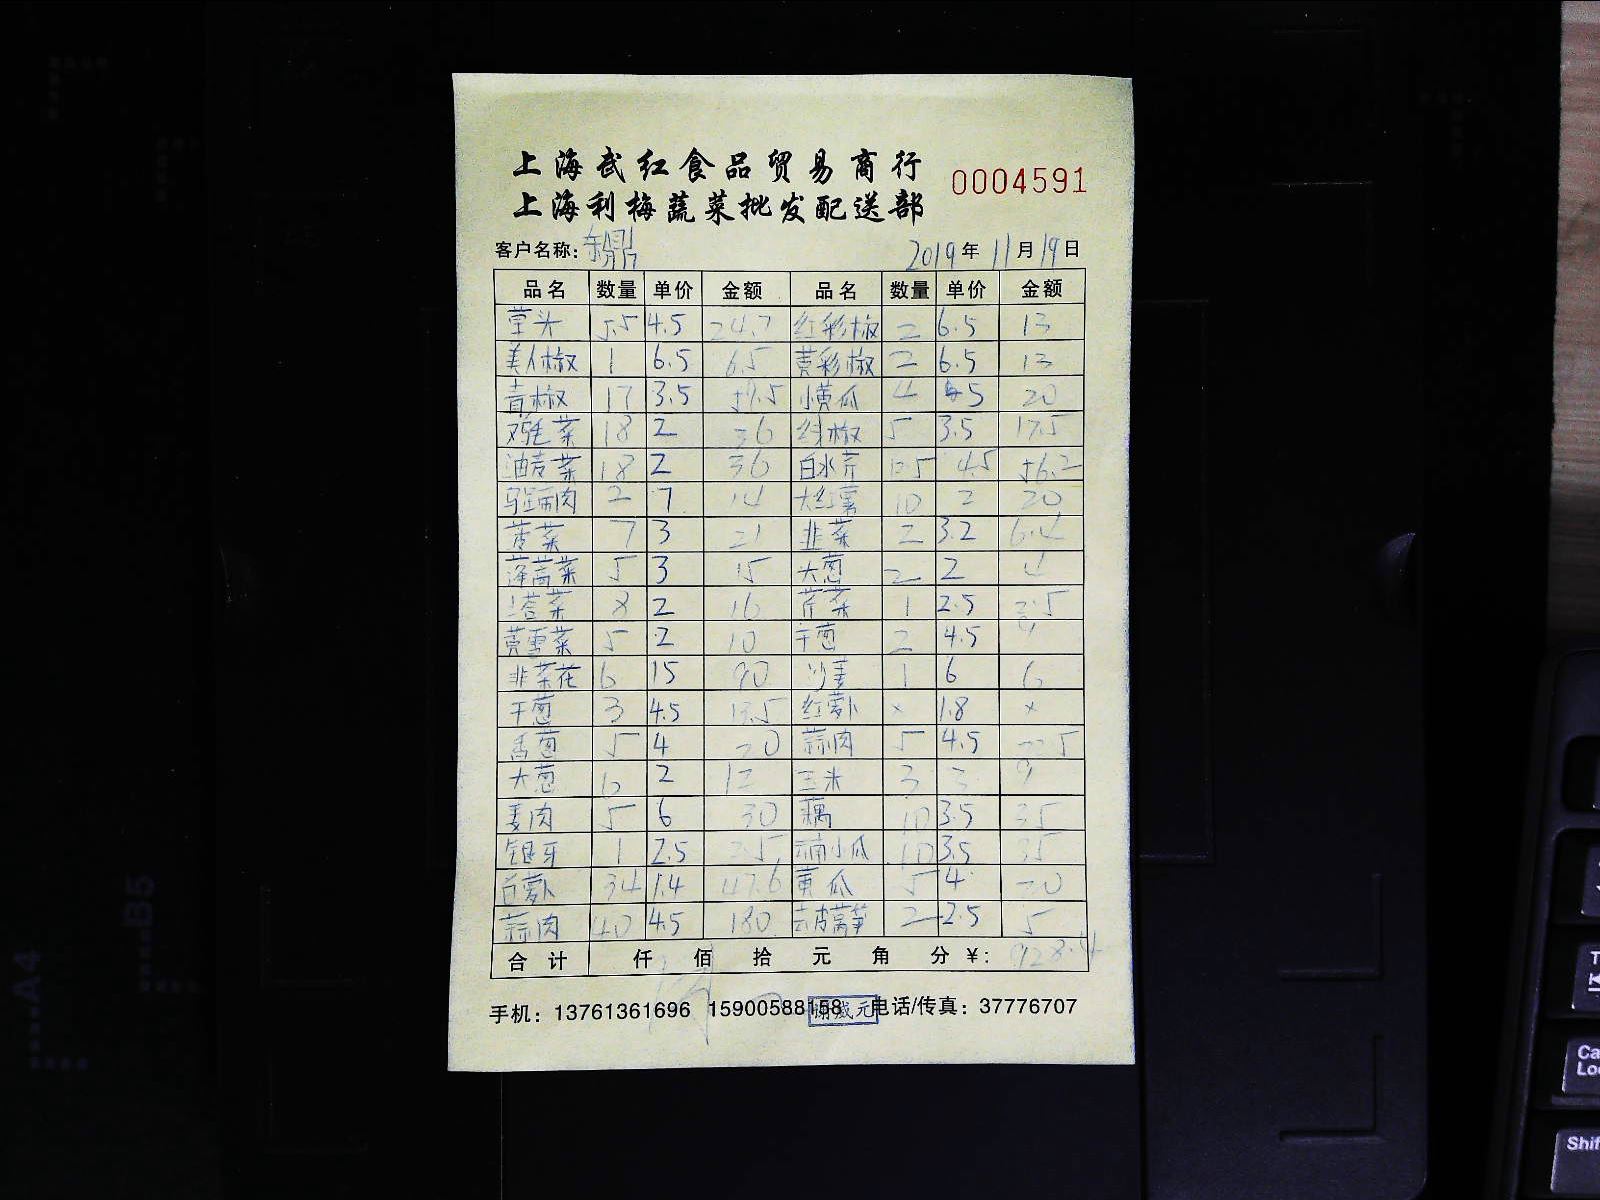 上海武红食品贸易商行
0004591
上海利梅蔬菜批发配送部
客户名称: 2019年11月19日
品名 数量 单价 金额 品名 数量 单价 金额
草头 5.5 4.5 24.7 红彩椒 2 6.5 13
美人椒 1 6.5 6.5 黄彩椒 2 6.5 13
青椒 17 3.5 59.5 小黄瓜 4 5 20
鸡毛菜 18 2 36 线椒 5 3.5 17.5
油麦菜 18 2 36 白水芹 12.5 4.5 56.2
马蹄肉 2 7 14 大红薯 10 2 20
7 3 21 韭菜 2 3.2 6.4
蓬蒿菜 5 3 15 大葱 2 2 4
塔菜 8 2 16 芹菜 1 2.5 2.5
5 2 10 干葱 2 4.5 9
韭菜花 6 15 90 沙姜 1 6 6
干葱 3 4.5 13.5 红萝卜 × 1.8 ×
香葱 5 4 20 蒜肉 5 4.5 22.5
大葱 6 2 12 玉米 3 3 9
姜肉 5 6 30 藕 10 3.5 35
银牙 1 2.5 2.5 云南小瓜 10 3.5 35
白萝卜 34 1.4 47.6 黄瓜 5 4 20
蒜肉 40 4.5 180 去皮莴笋 2 2.5 5
合计 仟 佰 拾 元 角 分 ¥: 928.4
手机: 13761361696 15900588158 电话/传真: 37776707